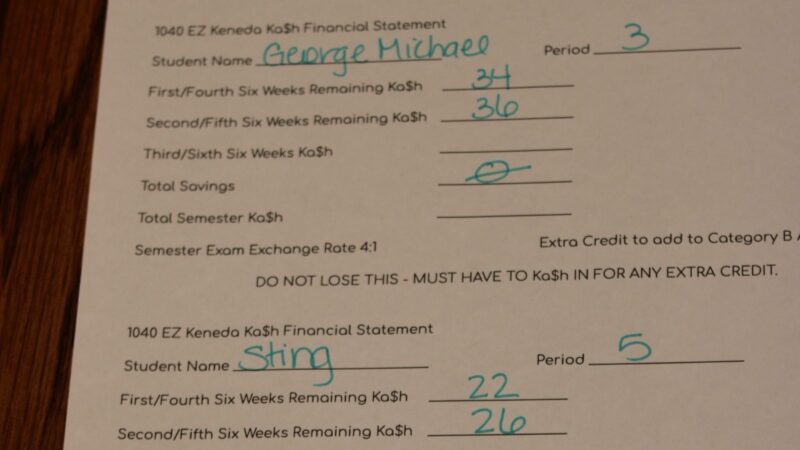 1040 EZ Keneda Ka$h Financial Statement
Student Name George Michael Period 3
First/Fourth Six Weeks Remaining Ka$h 34
Second/Fifth Six Weeks Remaining Ka$h 36
Third/Sixth Six Weeks Ka$h
Total Savings 0
Total Semester Ka$h
Semester Exam Exchange Rate 4:1 Extra Credit to add to Category B
DO NOT LOSE THIS - MUST HAVE TO Ka$h IN FOR ANY EXTRA CREDIT.
1040 EZ Keneda Ka$h Financial Statement
Student Name Sting Period 5
First/Fourth Six Weeks Remaining Ka$h 22
Second/Fifth Six Weeks Remaining Ka$h 26